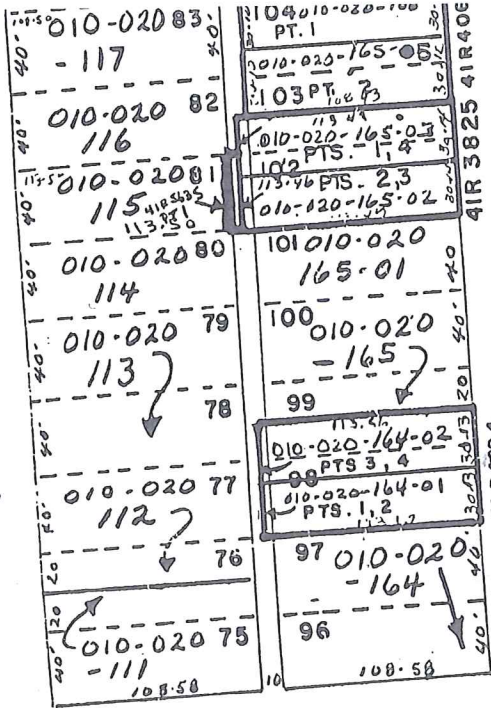 010-020 83
40'
- 117
010-020 82
40'
116
010-020 81
40'
115
41R5635
PT 1
113.50
010-020 80
40'
114
010-020 79
40'
113
78
40'
010-020 77
40'
112
76
20
20
010-020 75
40'
-111
108.58
10
104 010-020-166
PT. 1
010-020-165-05
103 PT. 2
010-020-165-03
PTS. 1, 4
102
113.46 PTS. 2,3
010-020-165-02
41R 3825
41R406
101 010-020
165-01
40
100 010-020
40'
- 165
99
20
010-020-164-02
30.13
98 PTS 3, 4
010-020-164-01
30.13
PTS. 1, 2
97 010-020
40'
- 164
96
40'
108.58